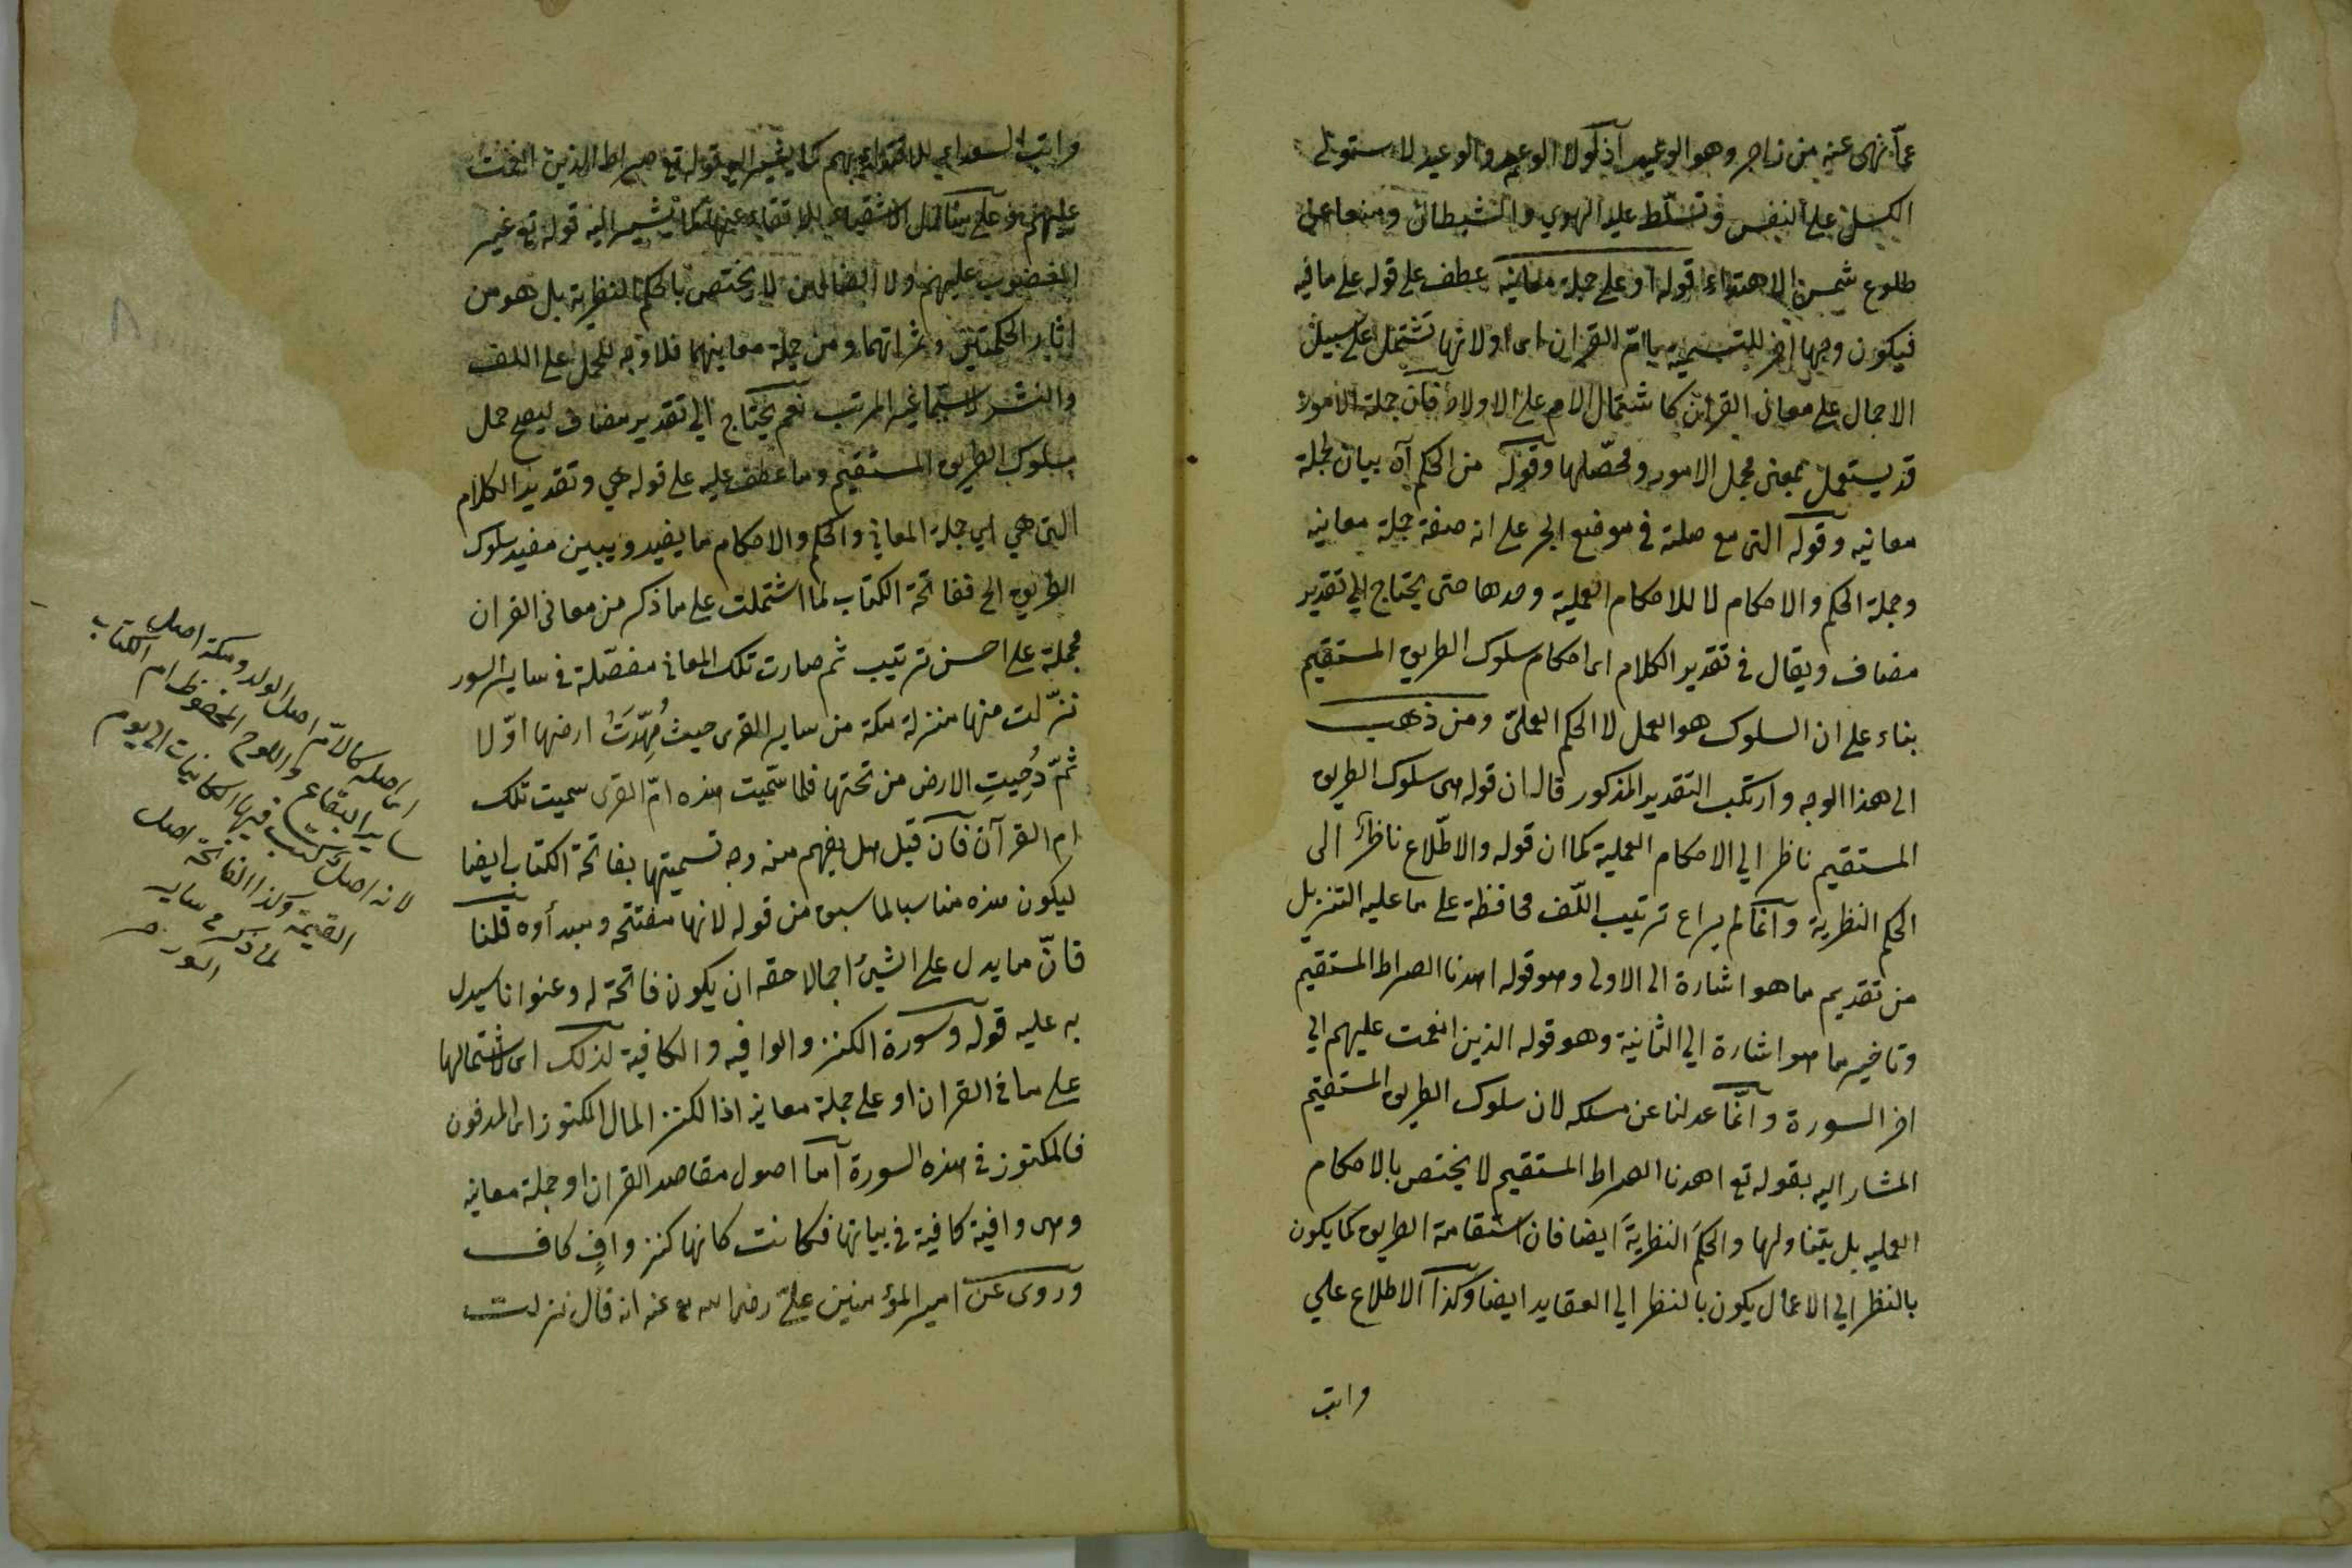 عمّا نهى عنه من زاجر وهو الوعيد اذ لولا الوعد والوعيد لاستولى
الكسل على النفس وتسلّط عليه الهوي والشيطان ومنعا عن
طلوع شمس الاهتداء قوله او على جملة معانيه عطف على قوله على ما فيه
فيكون وجها اخر للتسمية بامّ القران اى او لانها تشتمل على سبيل
الاجمال على معانى القران كاشتمال الام على الاولاد فان جملة الامور
قد يستعمل بمعنى مجمل الامور ومحصّلها وقوله من الحكم آه بيان لجملة
معانيه وقوله التى مع صلته فى موضع الجر على انه صفة جملة معانيه
وجملة الحكم والاحكام لا للاحكام العملية وحدها حتى يحتاج الي تقدير
مضاف ويقال فى تقدير الكلام اى احكام سلوك الطريق المستقيم
بناء على ان السلوك هو العمل لا الحكم العملىّ ومن ذهب
الى هذا الوجه وارتكب التقدير المذكور قال ان قوله هى سلوك الطريق
المستقيم ناظر الي الاحكام العملية كما ان قوله والاطّلاع ناظر الى
الحكم النظرية وانما لم يراع ترتيب اللّف محافظة على ما عليه التنزيل
من تقديم ما هو اشارة الى الاولى وهو قوله اهدنا الصراط المستقيم
وتاخير ما هو اشارة الي الثانية وهو قوله الذين انعمت عليهم الي
اخر السورة وانّما عدلنا عن مسلكه لان سلوك الطريق المستقيم
المشار اليه بقوله تع اهدنا الصراط المستقيم لا يختص بالاحكام
العمليه بل يتناولها والحكمَ النظريةَ ايضا فان استقامة الطريق كما يكون
بالنظر الي الاعمال يكون بالنظر الي العقايد ايضا وكذا الاطلاع علي
واتب
مراتب السعداء للاقتداء بهم كما يشير اليه قوله تع صراط الذين انعمت
عليهم وعلى منازل الاشقياء للاتقاء عنها كما يشير اليه قوله تع غير
المغضوب عليهم ولا الضالين لا يختص بالحكم النظرية بل هو من
اثار الحكمتين وثمراتهما ومن جملة معانيهما فلا وجه للحمل على اللف
والنشر لا سيما غير المرتب نعم يحتاج الي تقدير مضاف ليصح حمل
سلوك الطريق المستقيم وما عطف عليه على قوله هي وتقدير الكلام
التى هي اي جملة المعاني والحكم والاحكام ما يفيد ويبين مفيد سلوك
الطريق الخ ففاتحة الكتاب لما اشتملت على ما ذكر من معانى القران
مجملة على احسن ترتيب ثم صارت تلك المعاني مفصّلة فى ساير السور
نزّلت منها منزلة مكة من ساير القرى حيث مُهّدَتْ ارضها اوّلا
ثمّ دُحِيتِ الارض من تحتها فلما سمّيت هذه امّ القرى سميت تلك
ام القرآن فان قيل هل يفهم منه وجه تسميتها بفاتحة الكتاب ايضا
ليكون هذه مناسبا لما سبق من قوله لانها مفتتحه ومبدأوه قلنا
فانّ ما يدل على الشئ اجمالا حقه ان يكون فاتحة له وعنوانا
به عليه قوله وسورة الكنز والوافيه والكافية لذلك اى لاشتمالها
على ما فى القران او على جملة معانيه اذ الكنز المال المكنوز اى المدفون
فالمكنوز فى هذه السورة اما اصول مقاصد القران او جملة معانيه
وهى وافية كافية فى بيانها فكانت كانها كنز وافٍ كاف
وروى عن امير المؤمنين علىّ رضى الله تع عنه انه قال نزلت
اى اصله كالامّ اصل الولد ومكة اصل
ساير البقاع واللوح المحفوظ ام الكتاب
لانه اصل كتب فيها الكاينات الى يوم
القيمة وكذا الفاتحة اصل
لما ذكر فى ساير
السور